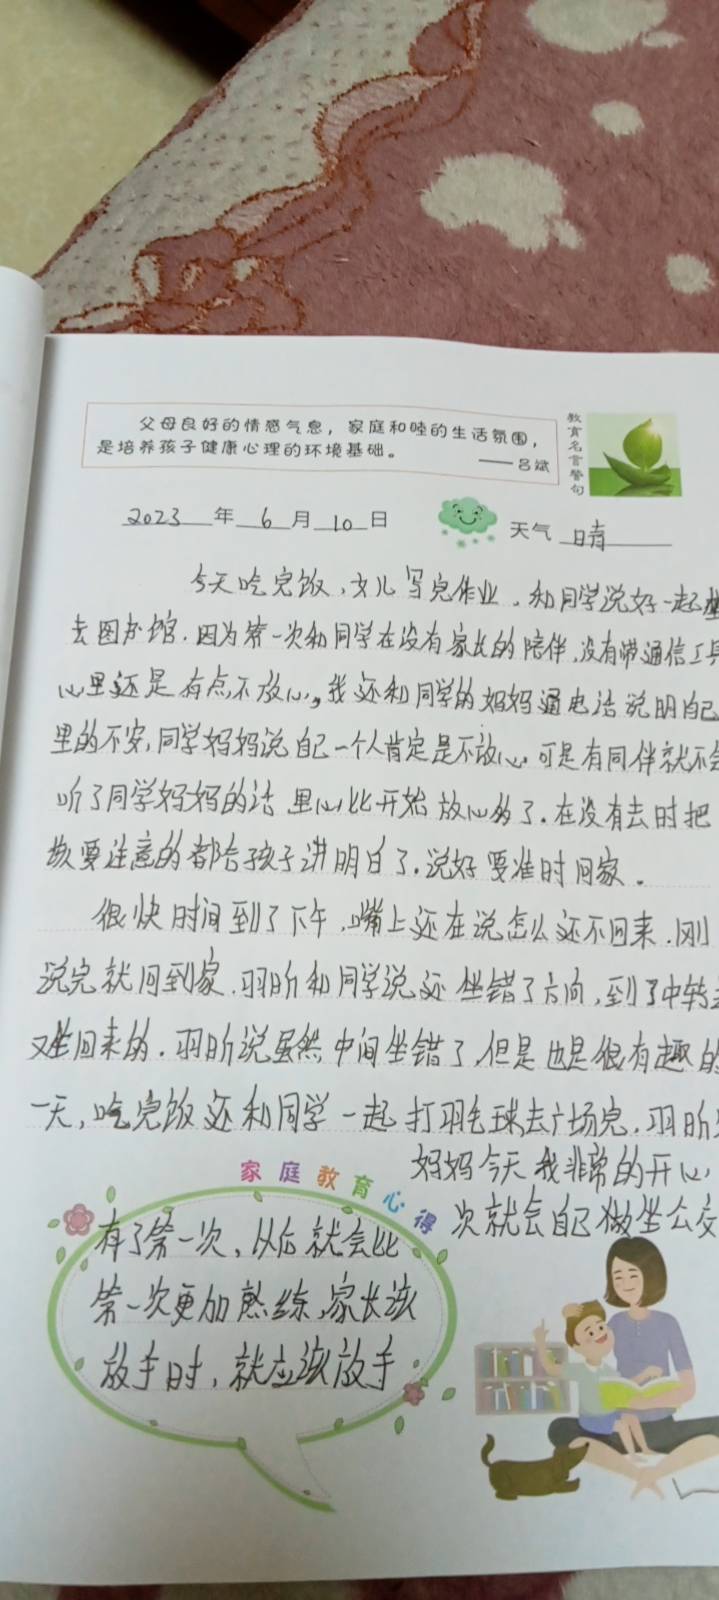 父母良好的情感气息，家庭和睦的生活氛围，
是培养孩子健康心理的环境基础。
——吕斌
教育名言警句
2023年6月10日
天气 晴
今天吃完饭，女儿写完作业，和同学说好一起坐
去图书馆，因为第一次和同学在没有家长的陪伴，没有带通信工具
心里还是有点不放心，我还和同学的妈妈通电话说明自己
里的不安，同学妈妈说自己一个人肯定是不放心，可是有同伴就不会
听了同学妈妈的话 里心比开始放心多了．在没有去时把
要注意的都给孩子讲明白了．说好要准时回家．
很快时间到了下午，嘴上还在说怎么还不回来．刚
说完就回到家．羽昕和同学说还坐错了方向，到了中转
又坐回来的．羽昕说虽然中间坐错了，但是也是很有趣的
一天，吃完饭还和同学一起打羽毛球去广场完．羽昕
妈妈今天我非常的开心，
次就会自己做坐公交
家庭教育心得
有了第一次，以后就会比
第一次更加熟练，家长该
放手时，就应该放手